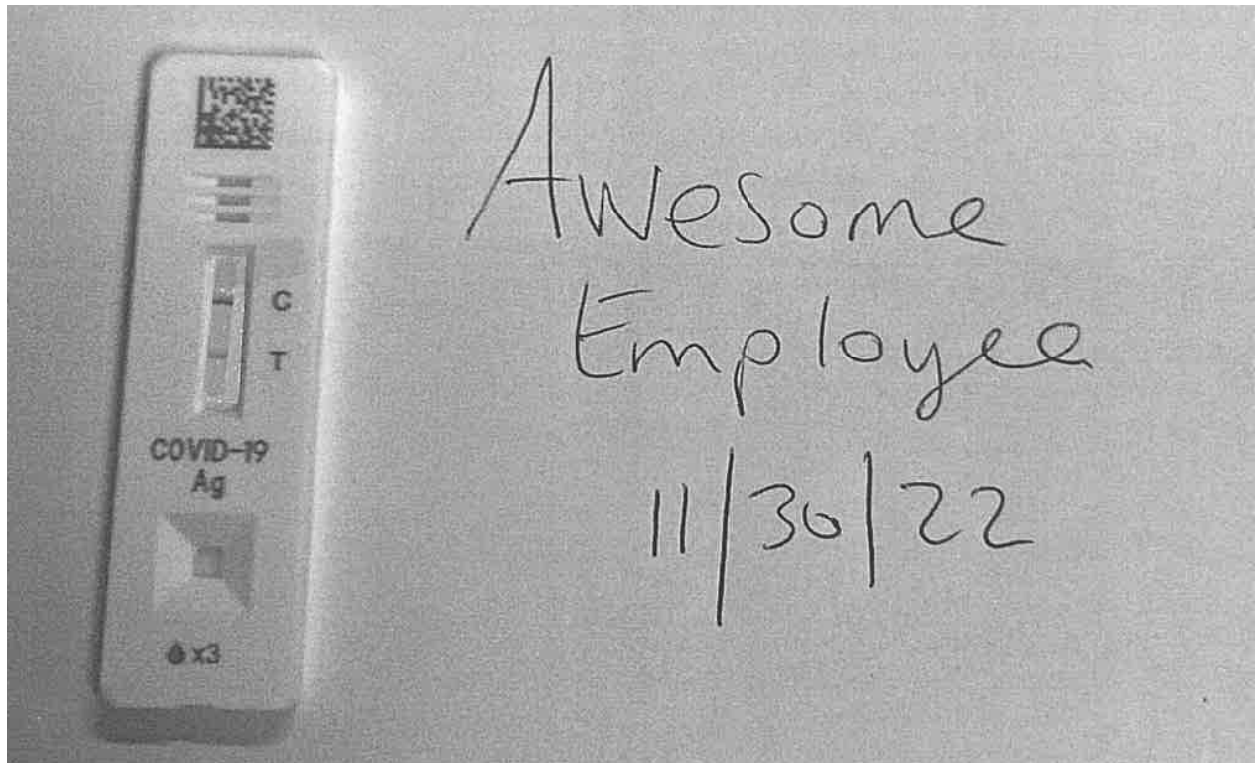 C
T
COVID-19
Ag
x3
Awesome
Employee
11/30/22